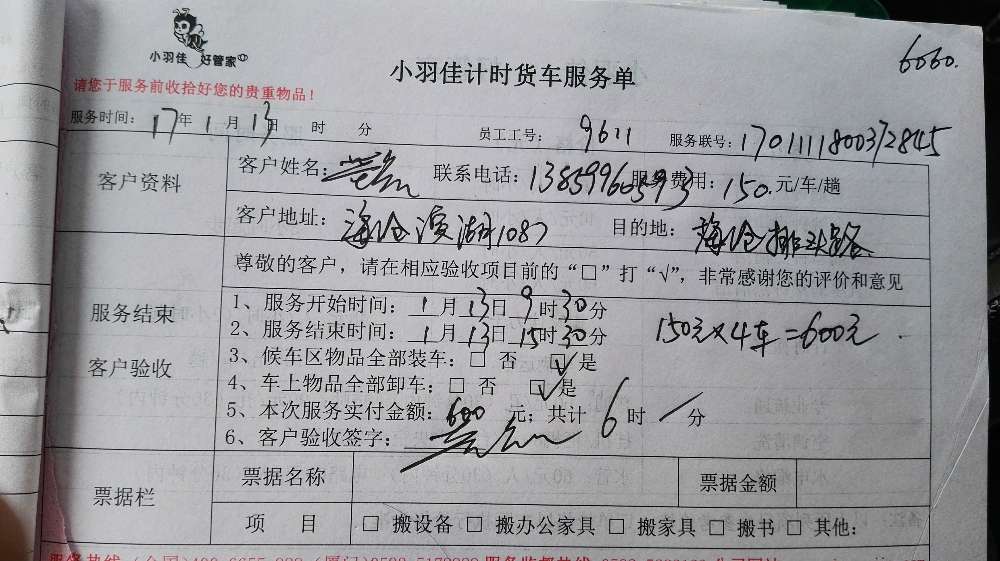 小羽佳 好管家
6060.
小羽佳计时货车服务单
请您于服务前收拾好您的贵重物品！
服务时间：17年1月13日 时 分 员工工号：9611 服务联号：1701111800372845
客户资料 客户姓名： 联系电话：13859960593 服务费用：150.元/车/趟
客户地址：海沧滨湖1087 目的地：海沧排头路
尊敬的客户，请在相应验收项目前的“□”打“√”，非常感谢您的评价和意见
服务结束
客户验收
1、服务开始时间：1月13日9时30分
2、服务结束时间：1月13日15时30分
150元×4车=600元
3、候车区物品全部装车：□ 否 ☑是
4、车上物品全部卸车：□ 否 ☑是
5、本次服务实付金额：600 元；共计 6 时 / 分
6、客户验收签字：
票据栏 票据名称 票据金额
项 目 □ 搬设备 □ 搬办公家具 □ 搬家具 □ 搬书 □ 其他：